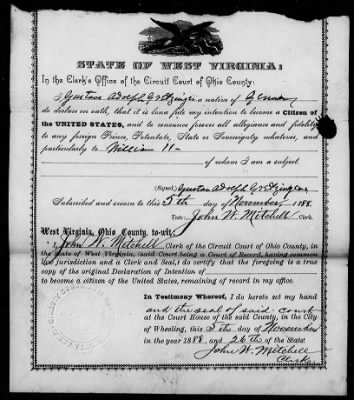 STATE OF WEST VIRGINIA:
In the Clerk's Office of the Circuit Court of Ohio County:
I Gustav Adolph a native of Germany
do declare on oath, that it is bona fide my intention to become a Citizen of
the UNITED STATES, and to renounce forever all allegiance and fidelity
to any foreign Prince, Potentate, State or Sovereignty whatever, and
particularly to William II
of whom I am a subject
(Signed) Gustav Adolph
Subscribed and sworn to this 5th day of November 188
Teste: John W. Mitchell Clerk
West Virginia, Ohio County, to-wit:
I, John W. Mitchell Clerk of the Circuit Court of Ohio County, in
the State of West Virginia, (said Court being a Court of Record, having common
law jurisdiction and a Clerk and Seal,) do certify that the foregoing is a true
copy of the original Declaration of Intention of
to become a citizen of the United States, remaining of record in my office.
In Testimony Whereof, I do hereto set my hand
and the seal of said court
at the Court House of the said County, in the City
of Wheeling, this 5th day of November
in the year 1888 and 26th of the State
John W. Mitchell
Clerk